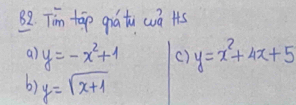 B2. Tìm tập giá trị của Hs
a) y = -x²+1
b) y = √(x+1)
c) y = x²+4x+5